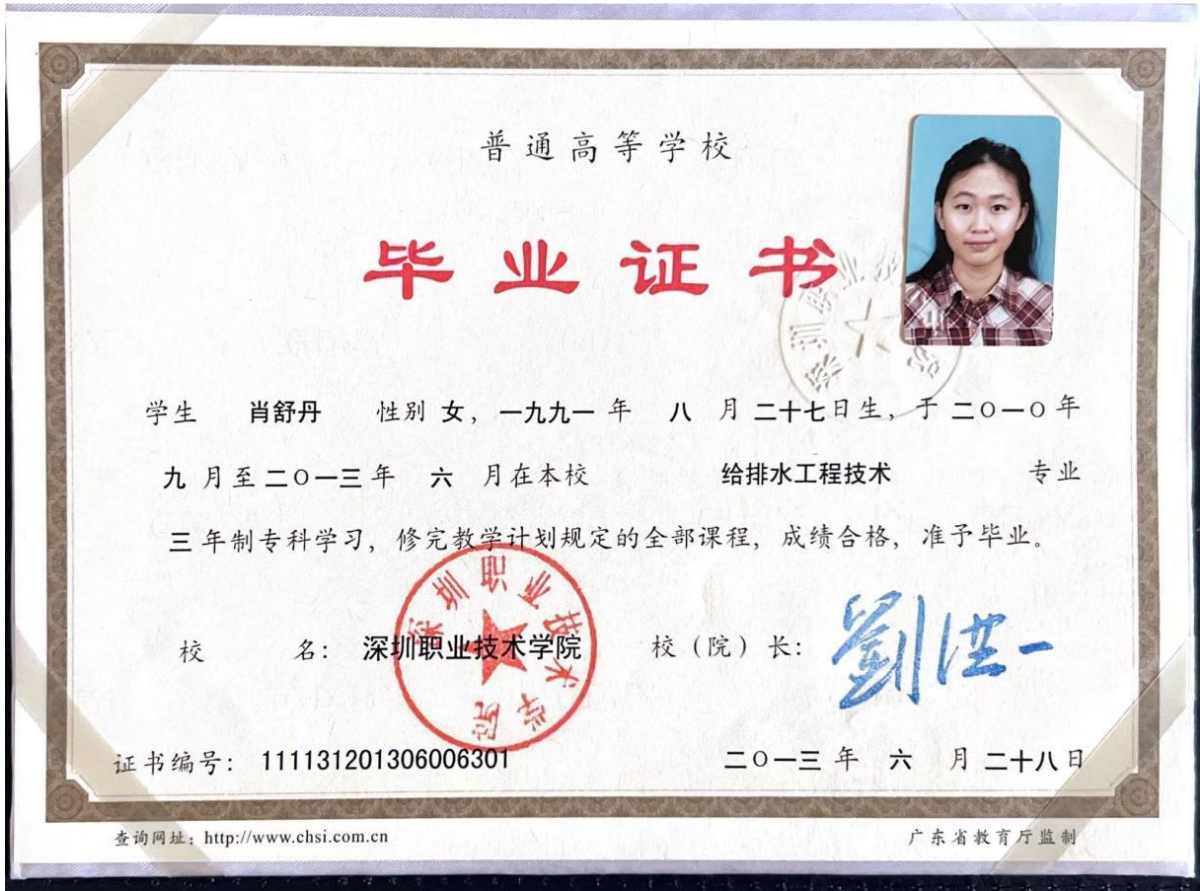 普通高等学校
毕业证书
学生 肖舒丹 性别 女，一九九一 年 八 月 二十七日生，于 二〇一〇年
九 月至 二〇一三 年 六 月在本校 给排水工程技术 专业
三 年制专科学习，修完教学计划规定的全部课程，成绩合格，准予毕业。
深圳职业技术学院
校 名： 深圳职业技术学院 校（院）长： 劉洪一
证书编号： 111131201306006301 二〇一三 年 六 月 二十八日
查询网址：http://www.chsi.com.cn 广东省教育厅监制